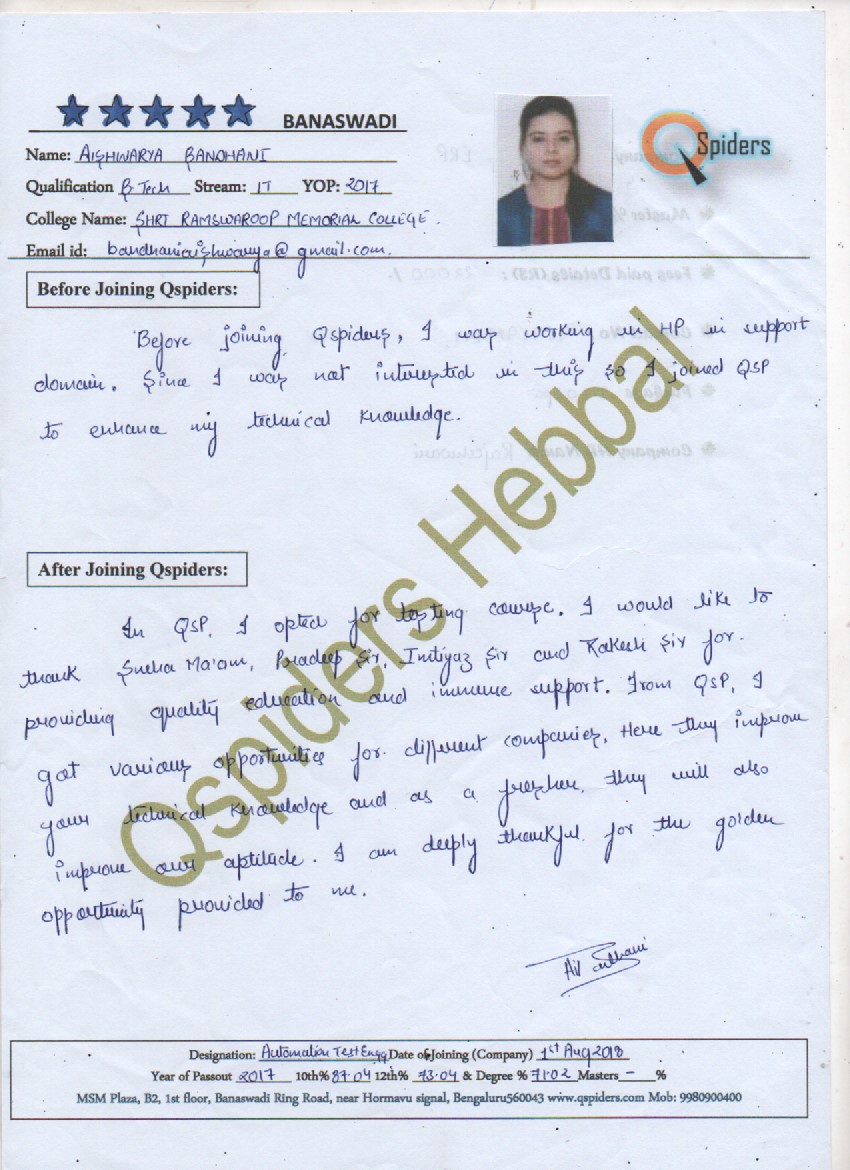 BANASWADI
Spiders
Name: AISHWARYA BANDHANI
Qualification B Tech Stream: IT YOP: 2017
College Name: SHRI RAMSWAROOP MEMORIAL COLLEGE.
Email id: bandhaniaishwarya@gmail.com.
Before Joining Qspiders:
Before joining Qspiders, I was working in HP in support
domain. Since I was not interested in this so I joined QSP
to enhance my technical knowledge.
After Joining Qspiders:
In QSP, I opted for testing course. I would like to
thank Sneha Ma'am, Pradeep Sir, Imtiyaz Sir and Rakesh Sir for
providing quality education and immense support. From QSP, I
got various opportunities for different companies. Here they improve
your technical knowledge and as a fresher, they will also
improve our aptitude. I am deeply thankful for the golden
opportunity provided to me.
Qspiders Hebbal
Designation: Automation Test Engg Date of Joining (Company) 1st Aug 2018
Year of Passout 2017 10th% 87.04 12th% 73.04 & Degree % 71.02 Masters - %
MSM Plaza, B2, 1st floor, Banaswadi Ring Road, near Hormavu signal, Bengaluru560043 www.qspiders.com Mob: 9980900400